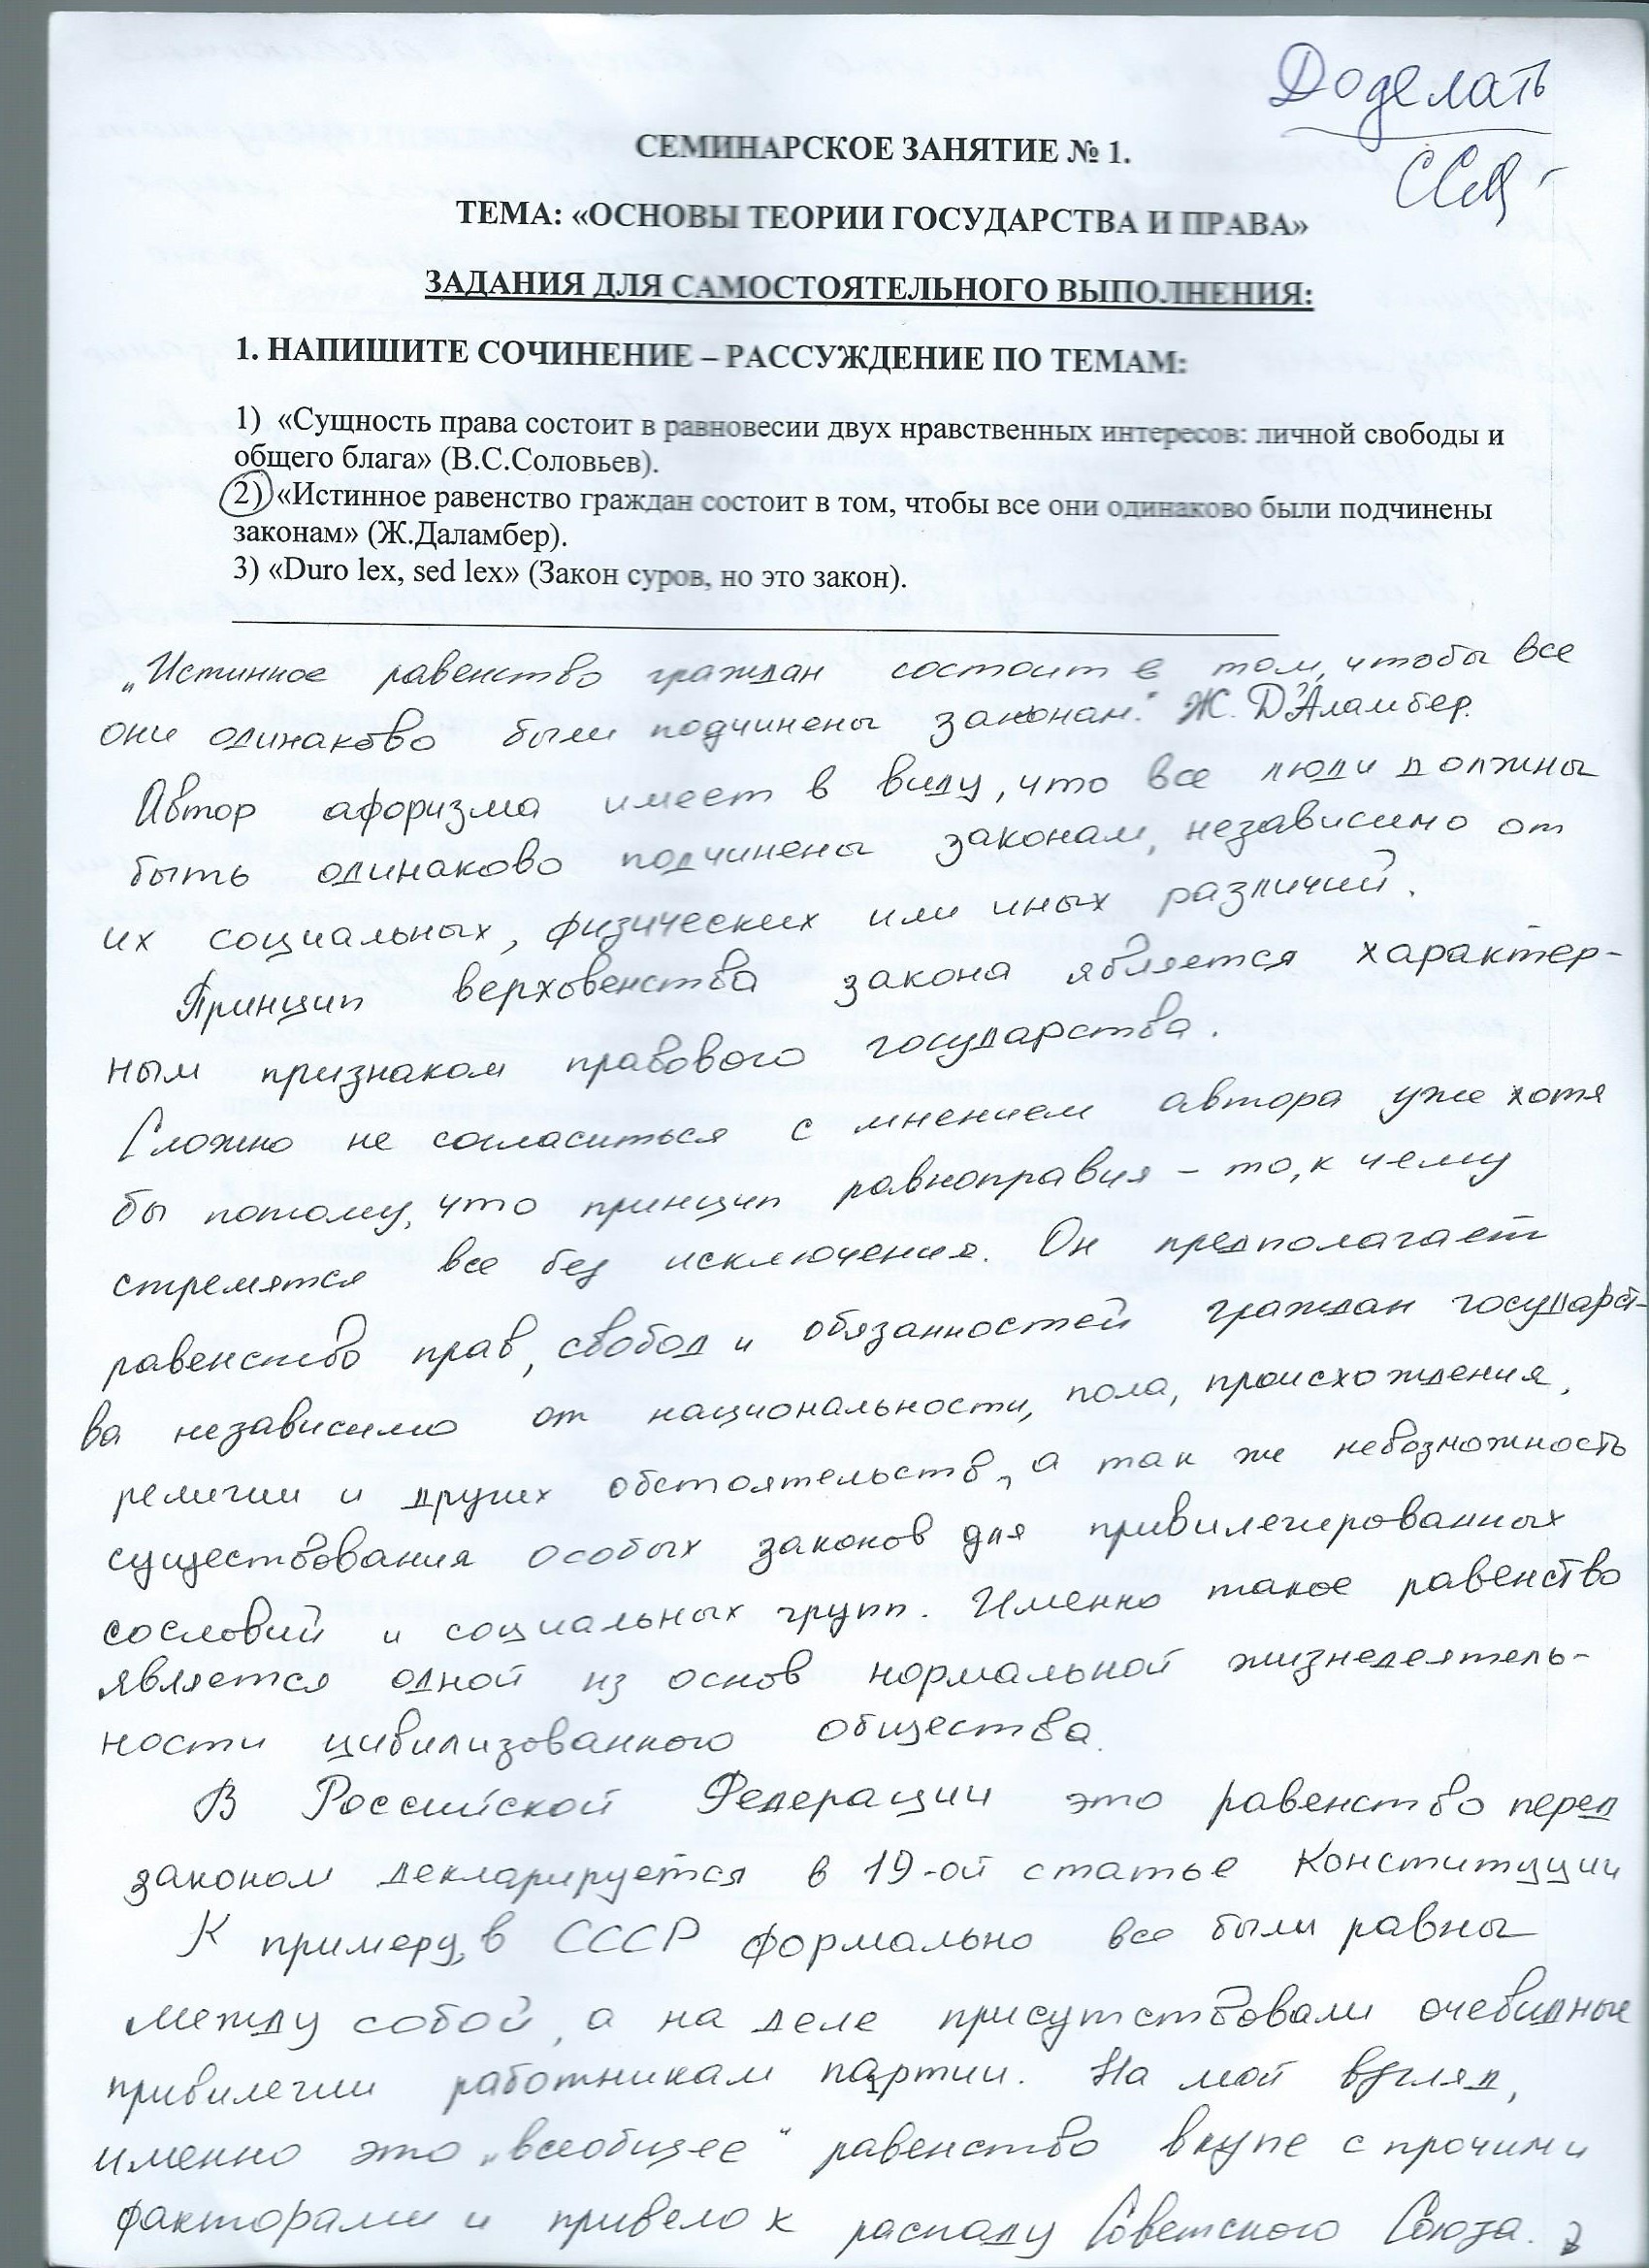 Доделать
СЕМИНАРСКОЕ ЗАНЯТИЕ № 1.
ТЕМА: «ОСНОВЫ ТЕОРИИ ГОСУДАРСТВА И ПРАВА»
ЗАДАНИЯ ДЛЯ САМОСТОЯТЕЛЬНОГО ВЫПОЛНЕНИЯ:
1. НАПИШИТЕ СОЧИНЕНИЕ – РАССУЖДЕНИЕ ПО ТЕМАМ:
1) «Сущность права состоит в равновесии двух нравственных интересов: личной свободы и
общего блага» (В.С.Соловьев).
2) «Истинное равенство граждан состоит в том, чтобы все они одинаково были подчинены
законам» (Ж.Даламбер).
3) «Duro lex, sed lex» (Закон суров, но это закон).
„Истинное равенство граждан состоит в том, чтобы все
они одинаково были подчинены законам." Ж. Д'Аламбер.
Автор афоризма имеет в виду, что все люди должны
быть одинаково подчинены законам, независимо от
их социальных, физических или иных различий.
Принцип верховенства закона является характер-
ным признаком правового государства.
Сложно не согласиться с мнением автора уже хотя
бы потому, что принцип равноправия – то, к чему
стремятся все без исключения. Он предполагает
равенство прав, свобод и обязанностей граждан государст-
ва независимо от национальности, пола, происхождения,
религии и других обстоятельств, а так же невозможность
существования особых законов для привилегированных
сословий и социальных групп. Именно такое равенство
является одной из основ нормальной жизнедеятель-
ности цивилизованного общества.
В Российской Федерации это равенство перед
законом декларируется в 19-ой статье Конституции
К примеру, в СССР формально все были равны
между собой, а на деле присутствовали очевидные
привилегии работникам партии. На мой взгляд,
1
именно это „всеобщее" равенство вкупе с прочими
факторами и привело к распаду Советского Союза.